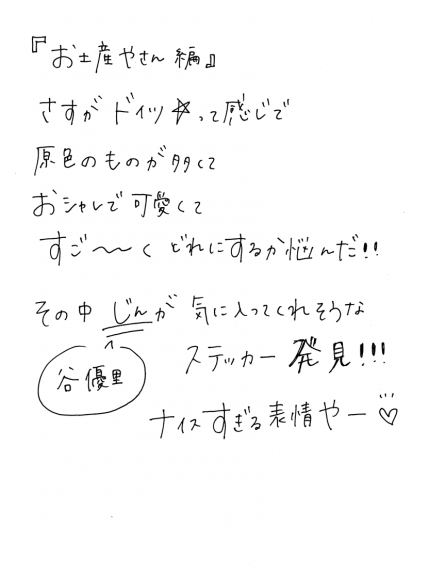 『お土産やさん編』
さすが ドイツ☆って感じで
原色のものが多くて
おシャレで可愛くて
すご〜〜く どれにするか悩んだ!!
その中 じんが 気に入ってくれそうな
谷優里
ステッカー 発見!!!
ナイスすぎる表情やー♡